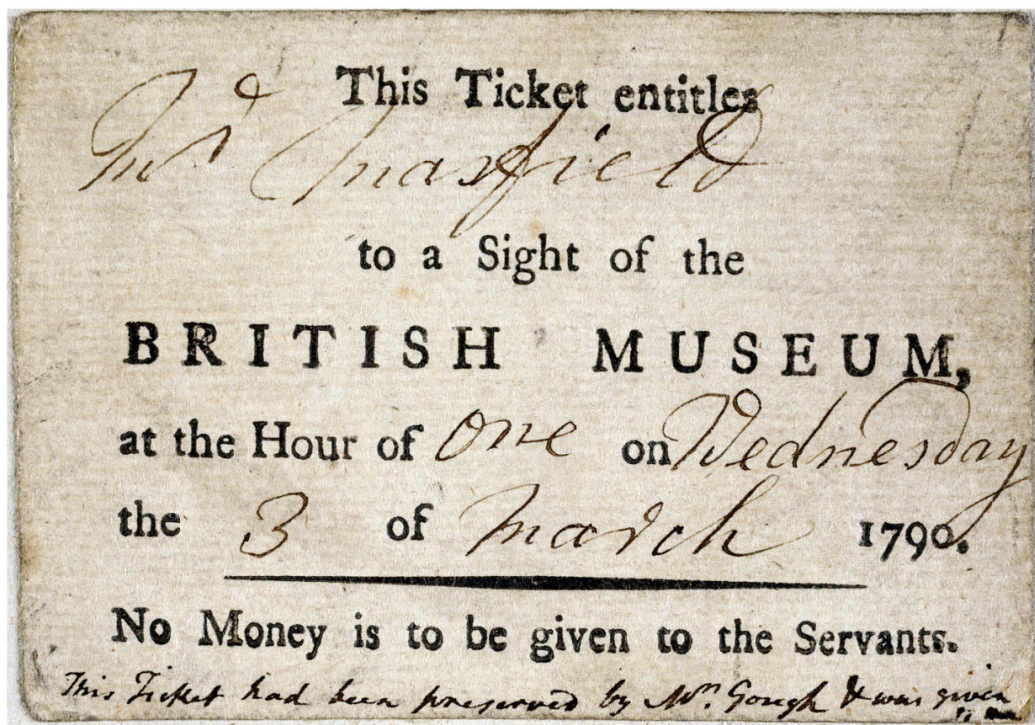 This Ticket entitles
to a Sight of the
BRITISH MUSEUM,
at the Hour of one on Wednesday
the 3 of March 1790.
No Money is to be given to the Servants.
This Ticket had been preserved by Mrs. Gough & was given